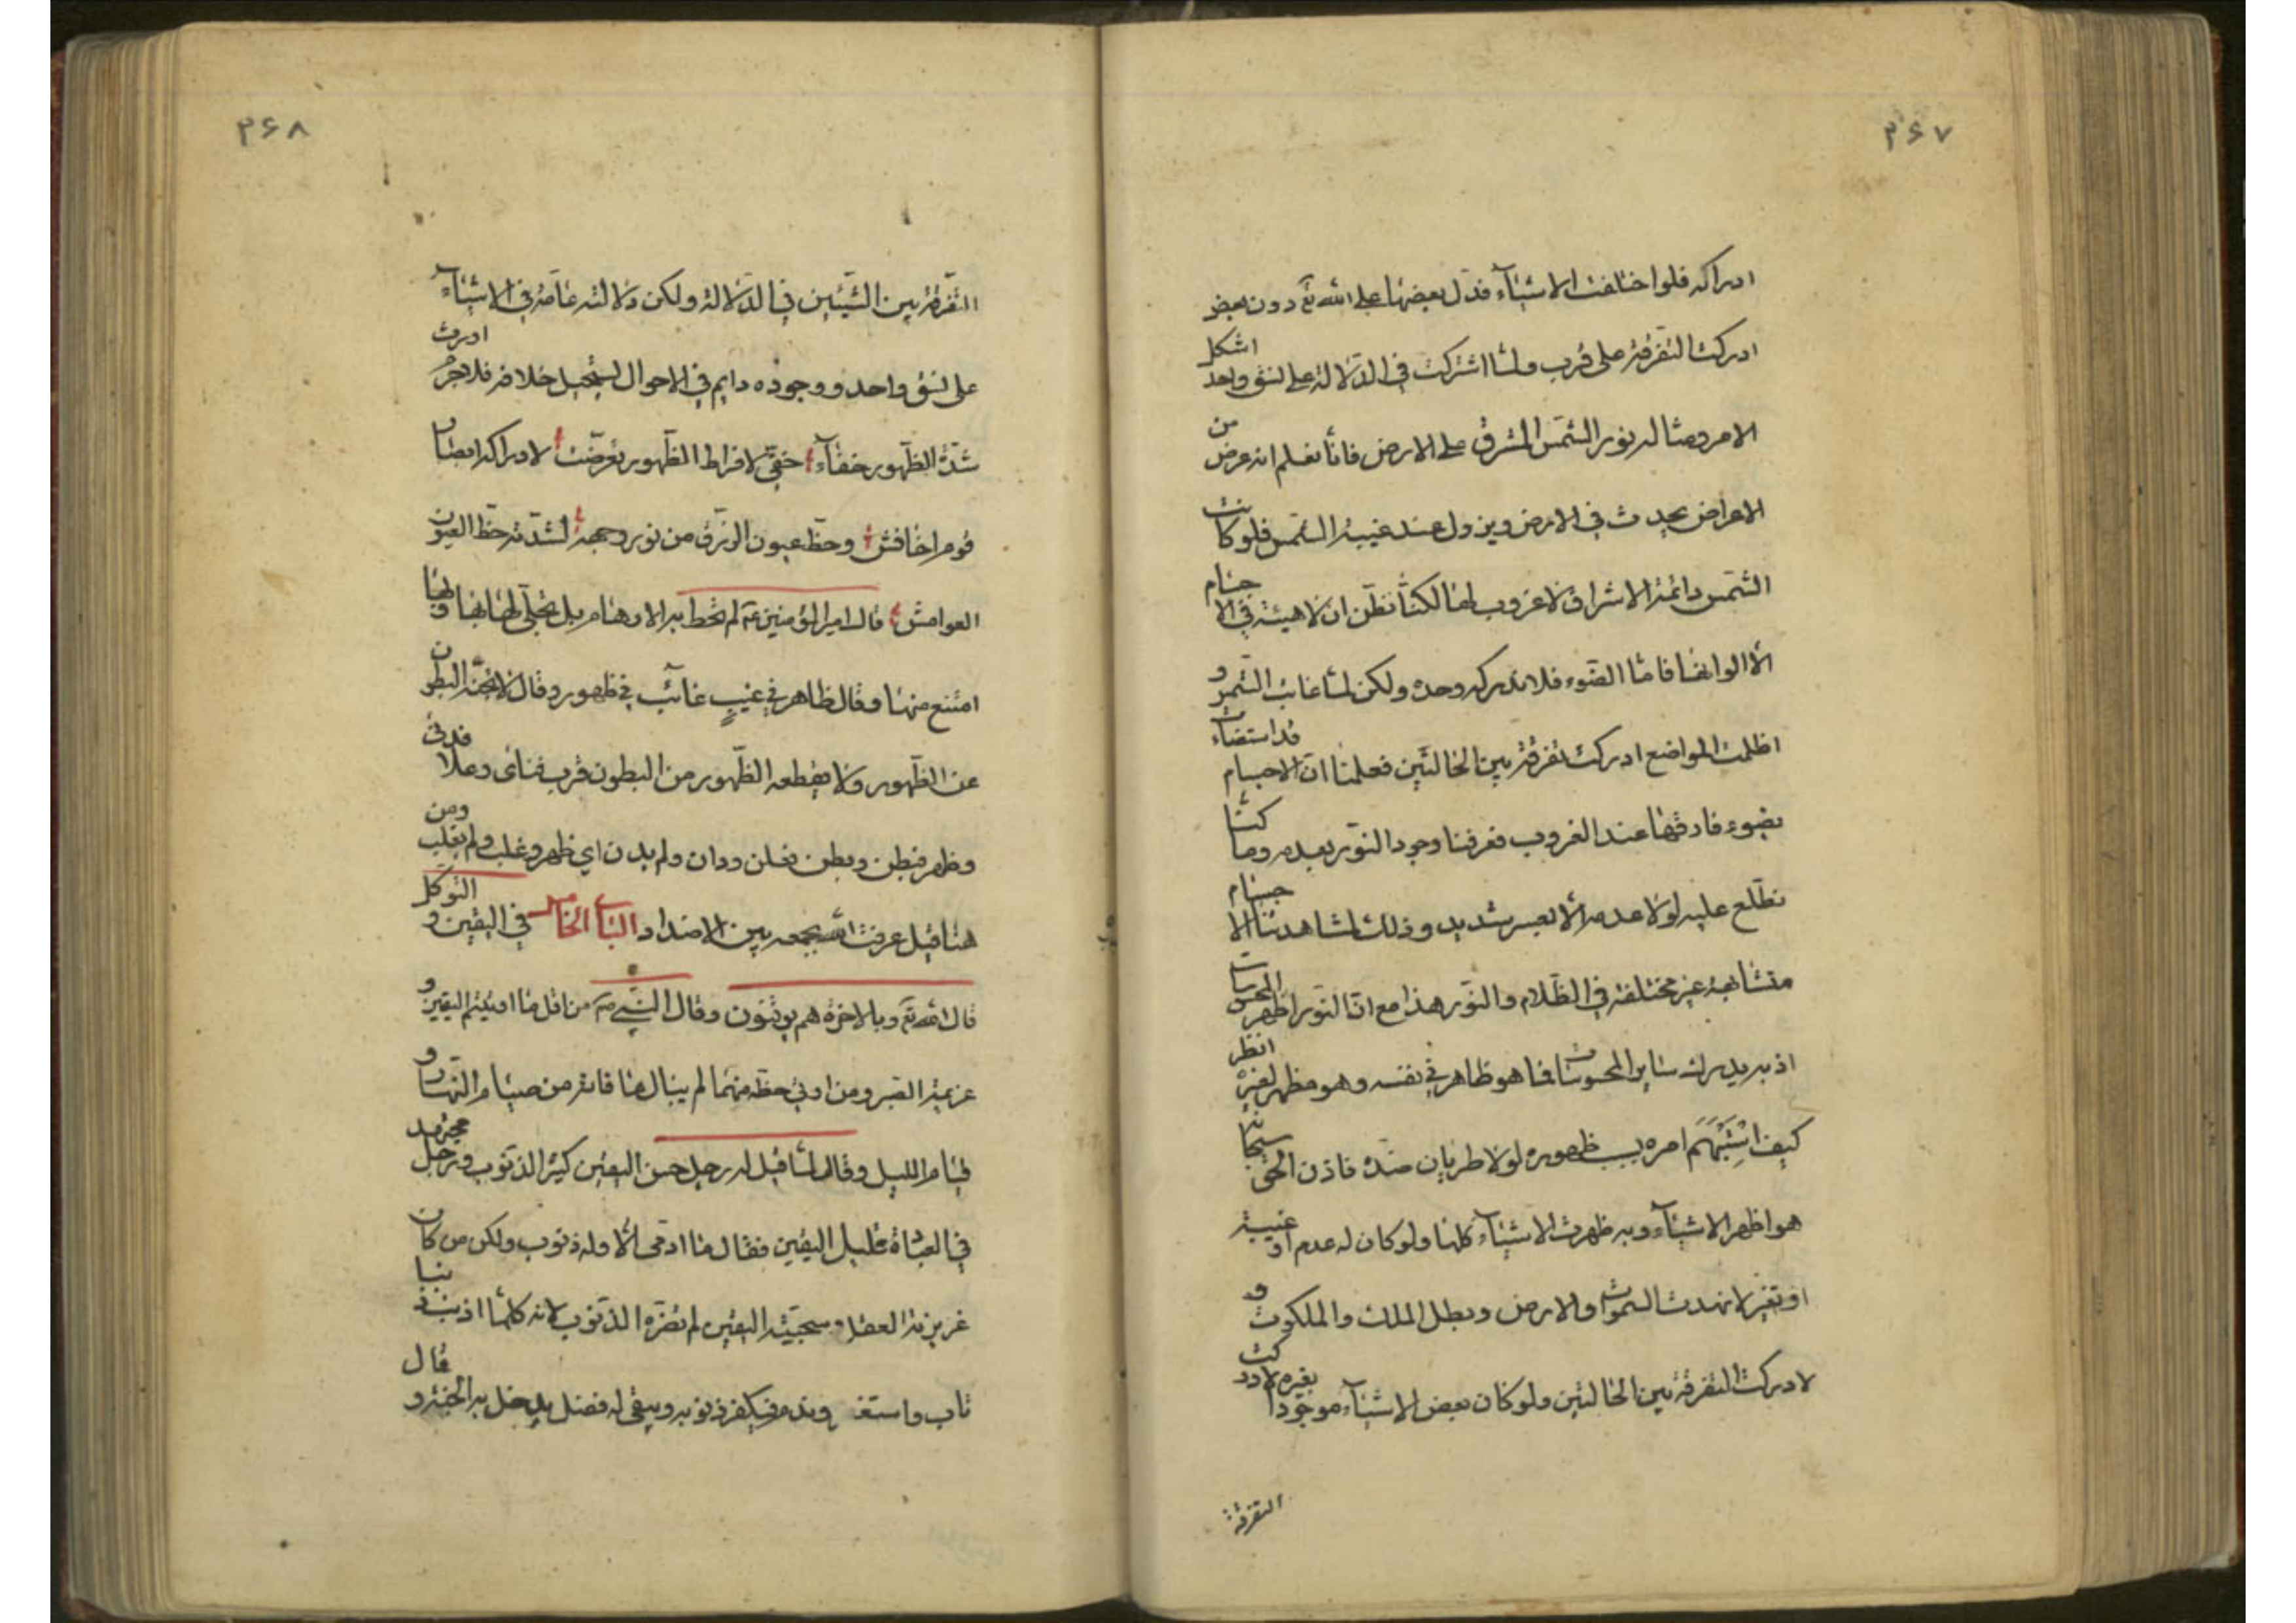 ۳۶۷
ادراكه فلو اختلفت الاشيآء فدل بعضها على الله تع دون بعض
ادركت التفرقة على قرب ولما اشتركت في الدلالة على نسق واحد اشكل
الامر ومثاله نور الشمس المشرق على الارض فانا نعلم انه عرض من
الاعراض يحدث في الارض ويزول عند غيبة الشمس فلو كانت
الشمس دائمة الاشراق لا غروب لها لكنا نظن ان لا هيئة في الاجسام
الا الوانها فاما الضوء فلا ندركه وحده ولكن لما غابت الشمس و
اظلمت المواضع ادركت تفرقة بين الحالتين فعلمنا ان الاجسام قد استضاءت
بضوء فارقها عند الغروب فعرفنا وجود النور بعدمه وما كنا
نطلع عليه لولا عدمه الا بعسر شديد وذلك لمشاهدتنا الاجسام
متشابهة غير مختلفة في الظلام والنور هذا مع ان النور اظهر المحسوسات
اذ به يدرك ساير المحسوسات فما هو ظاهر في نفسه وهو مظهر لغيره انظر
كيف اشتبهم امره بسبب ظهوره لولا طريان ضده فاذن الحق سبحانه
هو اظهر الاشيآء وبه ظهرت الاشيآء كلها ولو كان له عدم او غيبة
او تغير لانهدت السموات والارض وبطل الملك والملكوت و
لادركت التفرقة بين الحالتين ولو كان بعض الاشيآء موجودا بغيره لادركت
التفرقة
۳۶۸
التفرقة بين الشيئين في الدلالة ولكن دلالته عامة في الاشيآء
على نسق واحد ووجوده دايم في الاحوال يستحيل خلافه فلا جرم اورث
شدة الظهور خفآء خفي لافراط الظهور تعرضت لادراكه ابصار
قوم اخافش وحظ عيون الزرق من نور وجهه لشدته حظ العيون
العوامش قال امير المؤمنين عم لم تحط به الاوهام بل تجلى لها بها وبها
امتنع منها وقال ظاهر في غيب غائب في ظهور وقال لا تجنه البطون
عن الظهور ولا يقطعه الظهور من البطون قرب فنأى وعلا فدنى
وظهر فبطن وبطن فعلن ودان ولم يدن اي ظهر وغلب ولم يغلب ومن
هنا قيل عرفت الله بجمعه بين الاضداد الباب الخامس في اليقين والتوكل
قال الله تع وبالاخرة هم يوقنون وقال النبي ص من اقل ما اوتيتم اليقين و
عزيمة الصبر ومن اوتي حظه منهما لم يبال ما فاته من صيام النهار و
قيام الليل وقال لما قيل له رجل حسن اليقين كثير الذنوب ورجل مجتهد
في العبادة قليل اليقين فقال ما ادمي الا وله ذنوب ولكن من كان
غريزته العقل وسجيته اليقين لم تضره الذنوب لانه كلما اذنب ذنبا
تاب واستغفر وندم فيكفر ذنوبه ويبقى له فضل يدخل به الجنة وقال